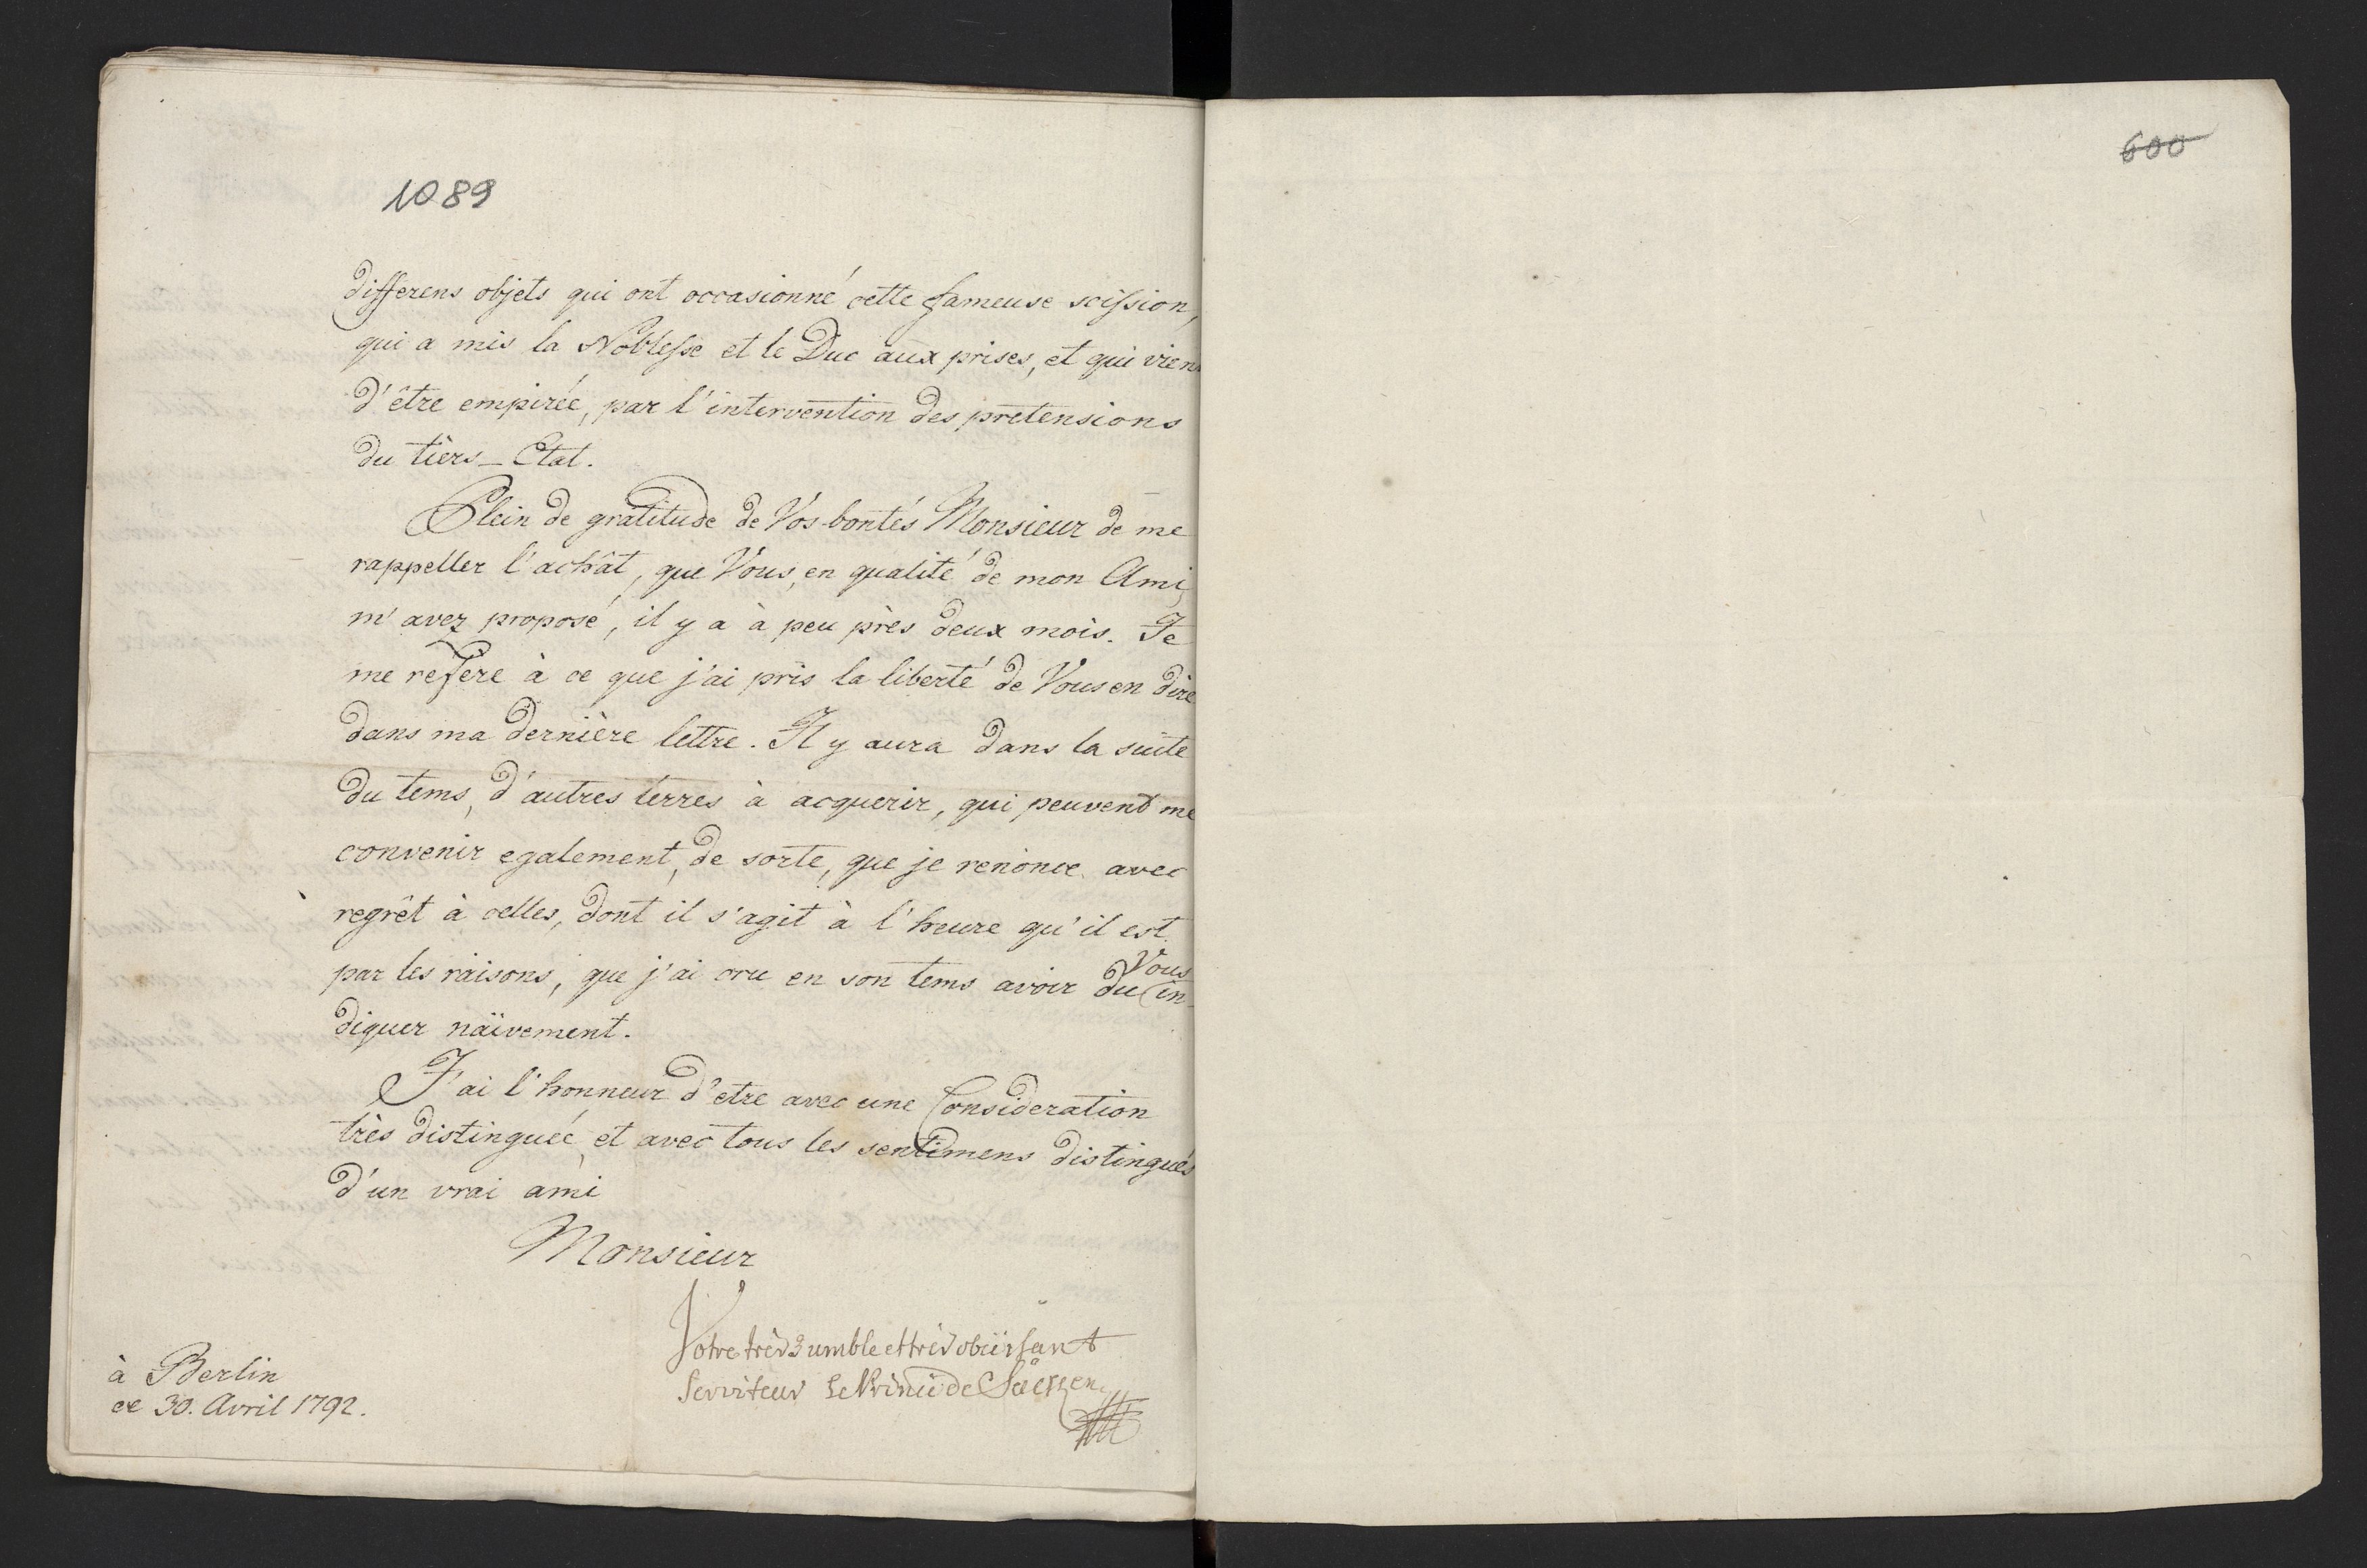 1089
differens objets qui ont occasionné cette fameuse scission,
qui a mis la Noblesse et le Duc aux prises, et qui vien
d'être empirée, par l'intervention des pretensions
du tièrs-Etat.
Plein de gratitude de Vos bontés Monsieur de me
rappeller l'achât, que Vous, en qualité de mon Ami,
m'avez proposé, il y a à peu près deux mois. Je
me refère à ce que j'ai pris la liberté de Vous en dire
dans ma dernière lettre. Il y aura dans la suite
du tems, d'autres terres à acquerir, qui peuvent me
convenir egalement, de sorte, que je renonce avec
regrêt à celles, dont il s'agit à l'heure qu'il est
par les raisons, que j'ai cru en son tems avoir du Vous in-
diquer naïvement.
J'ai l'honneur d'etre avec une Consideration
très distinguée, et avec tous les sentimens distingués
d'un vrai ami
Monsieur
Votre très humble et très obéissant
serviteur le Prince de Sacken
à Berlin
ce 30. Avril 1792.
600